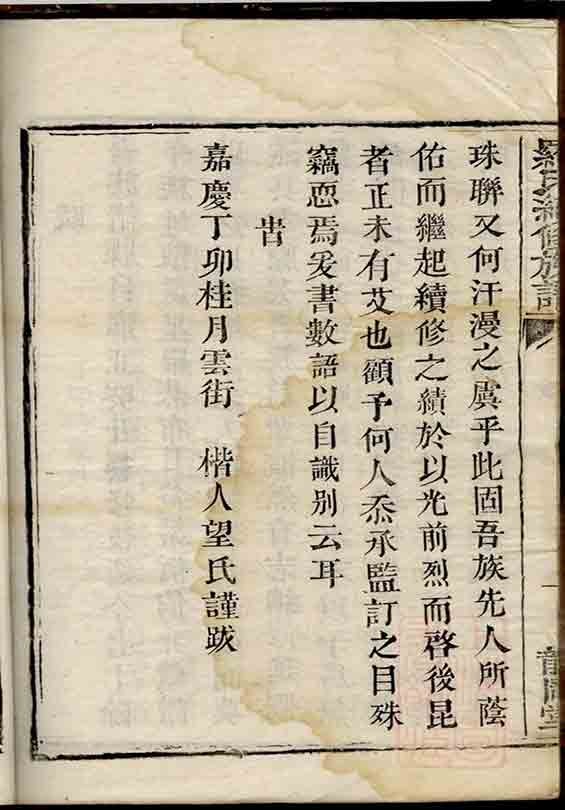 珠聯又何汗漫之虞乎此固吾族先人所蔭
佑而繼起續修之績於以光前烈而啓後昆
者正未有艾也顧予何人忝承監訂之目殊
竊恧焉爰書數語以自識别云耳
旹
嘉慶丁卯桂月雲街　楷人望氏謹跋